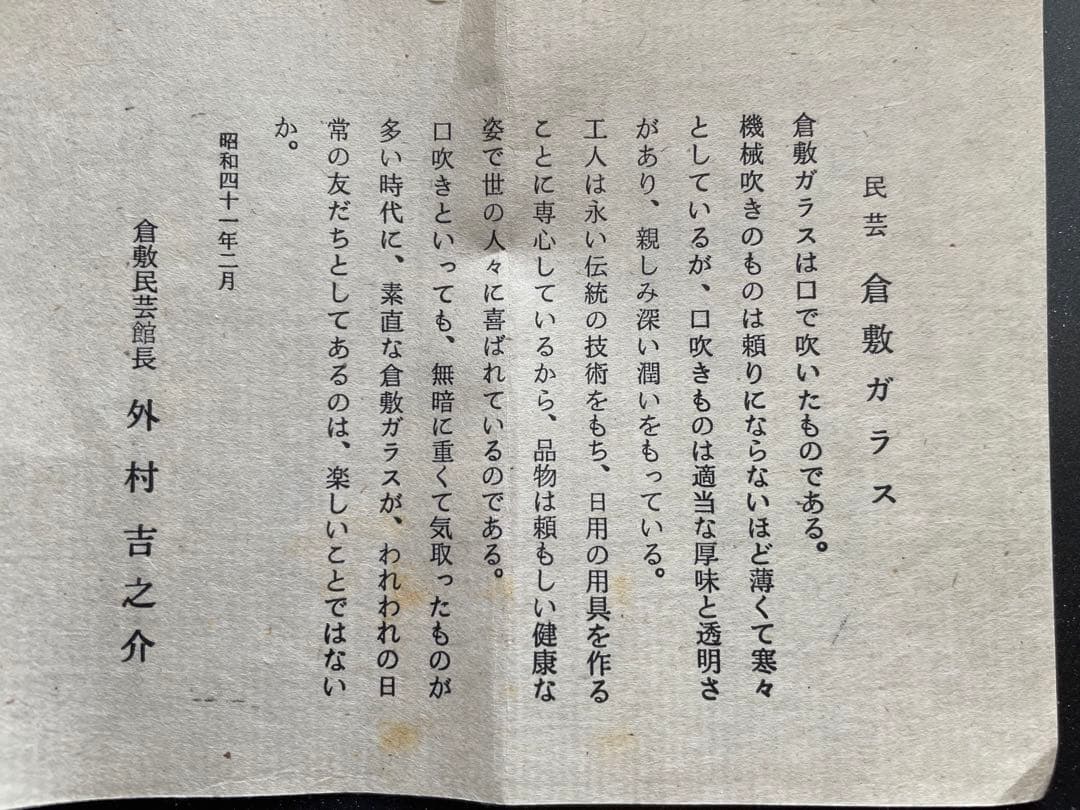 民芸 倉敷ガラス
倉敷ガラスは口で吹いたものである。
機械吹きのものは頼りにならないほど薄くて寒々
としているが、口吹きものは適当な厚味と透明さ
があり、親しみ深い潤いをもっている。
工人は永い伝統の技術をもち、日用の用具を作る
ことに専心しているから、品物は頼もしい健康な
姿で世の人々に喜ばれているのである。
口吹きといっても、無暗に重くて気取ったものが
多い時代に、素直な倉敷ガラスが、われわれの日
常の友だちとしてあるのは、楽しいことではない
か。
昭和四十一年二月
倉敷民芸館長 外村吉之介